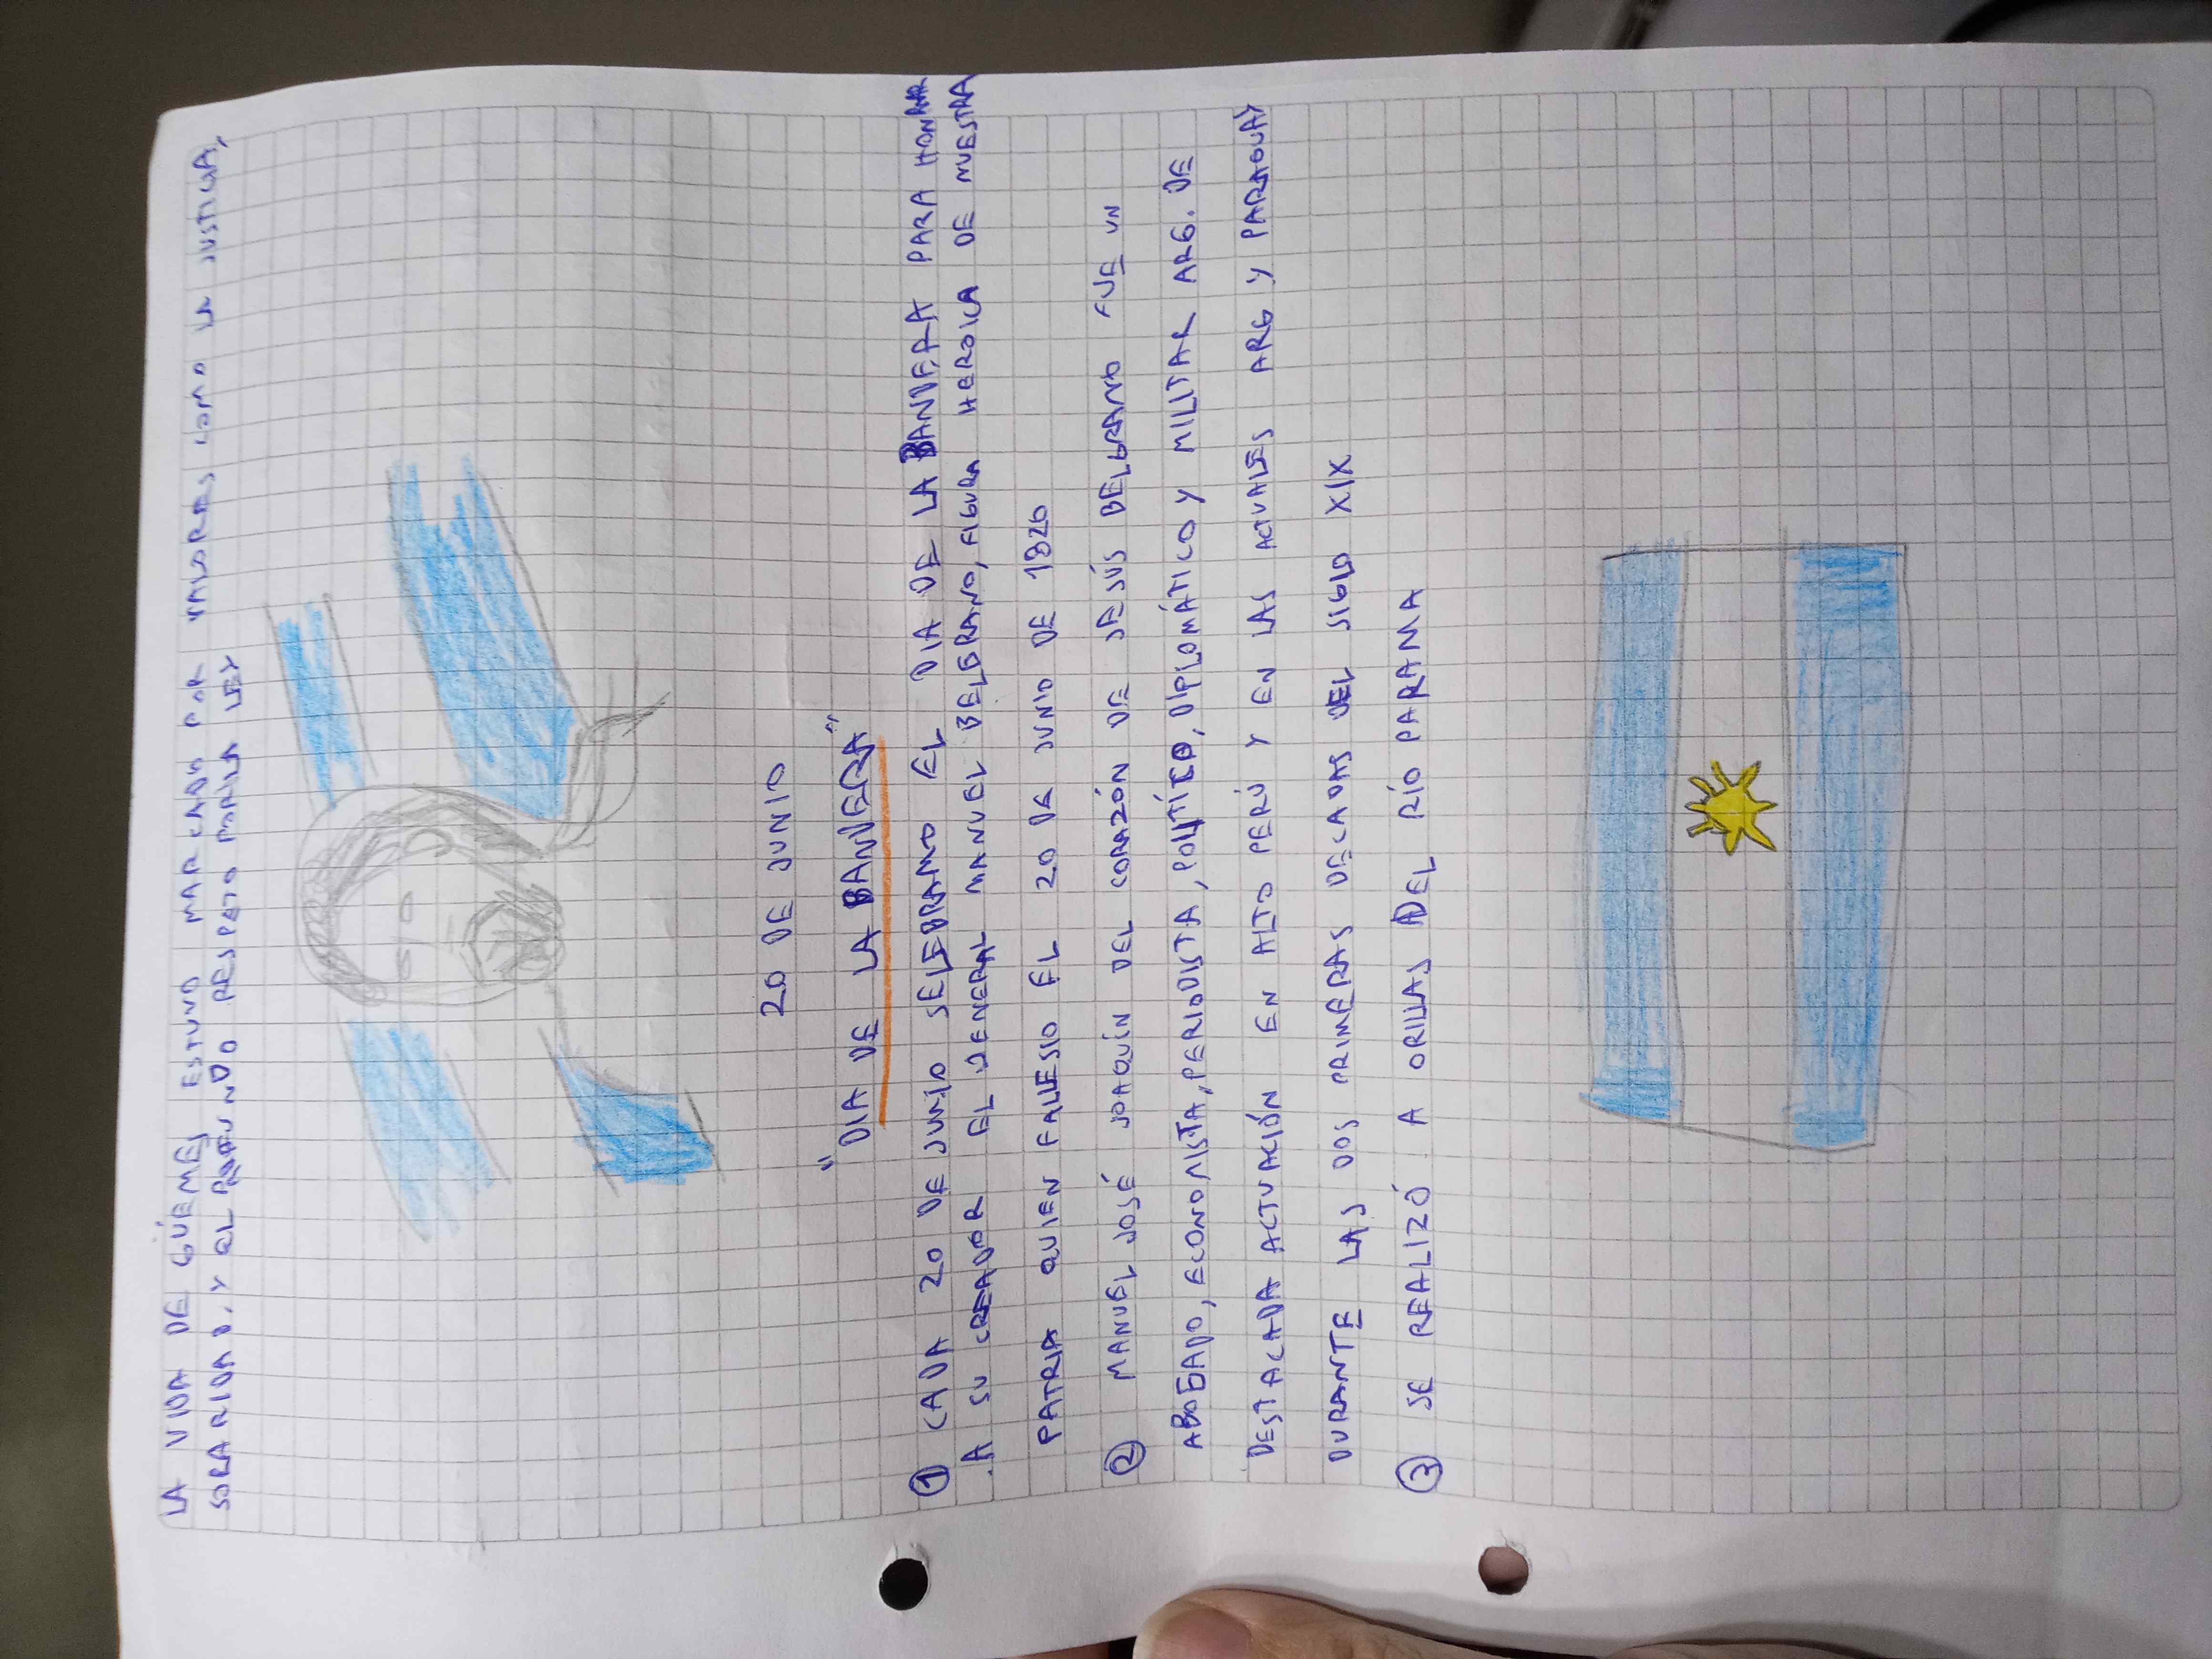 LA VIDA DE GÚEMES ESTUVO MARCADO POR VALORES COMO LA JUSTICIA,
SORARIDAD, Y EL PROFUNDO RESPETO POR LA LEY
20 DE JUNIO
"DIA DE LA BANDERA"
① CADA 20 DE JUNIO SELEBRAMO EL DIA DE LA BANDERA PARA HONRAR
A SU CREADOR EL GENERAL MANUEL BELGRANO, FIGURA HEROICA DE NUESTRA
PATRIA QUIEN FALLESIO EL 20 DE JUNIO DE 1820
② MANUEL JOSÉ JOAQUÍN DEL CORAZÓN DE JESÚS BELGRANO FUE UN
ABOGADO, ECONOMISTA, PERIODISTA, POLITÍCO, DIPLOMÁTICO Y MILITAR ARG. DE
DESTACADA ACTUACIÓN EN ALTO PERÚ Y EN LAS ACTUALES ARG Y PARAGUAY
DURANTE LAS DOS PRIMERAS DECADAS DEL SIGLO XIX
③ SE REALIZÓ A ORILLAS DEL RÍO PARAMA